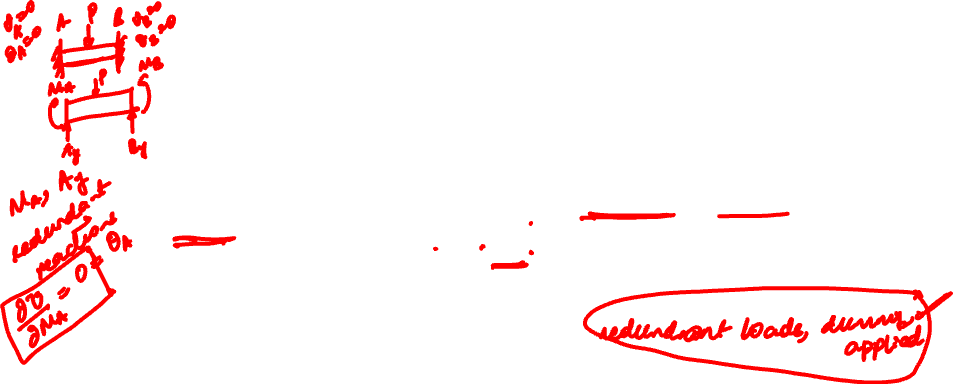 y_A=0 A P B y_B=0
θ_A=0 θ_B=0
M_A P M_B
A_y B_y
M_A, A_y
redundant
reactions
∂U/∂M_A = 0 = θ_A
redundant loads, dummy,
applied